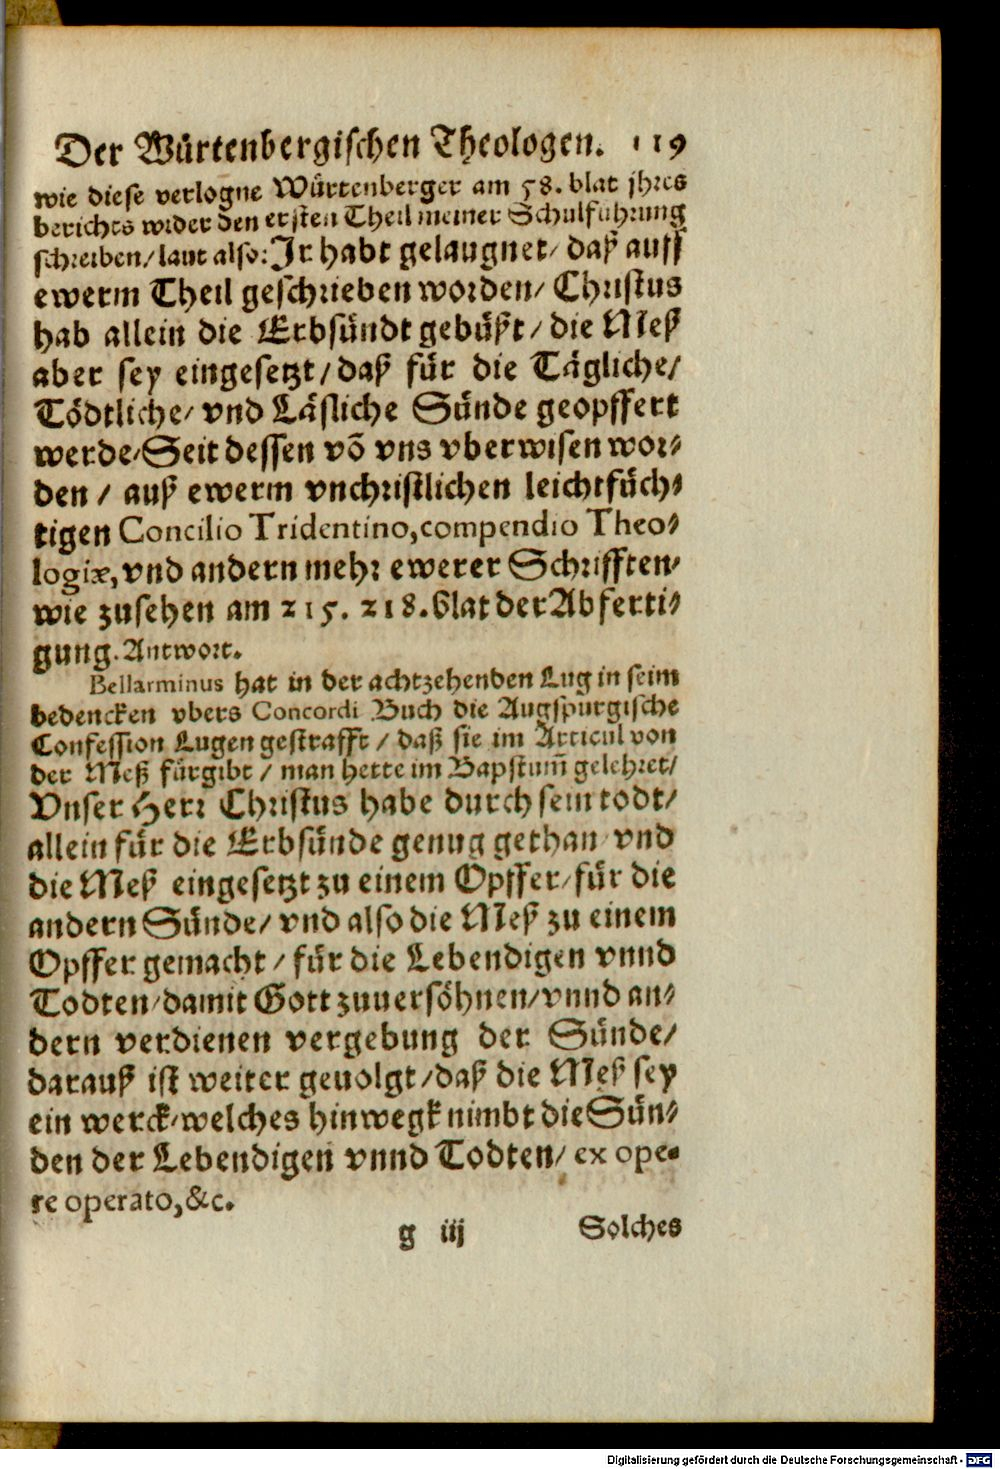 Der Würtenbergischen Theologen. 119
wie diese verlogne Würtenberger am 58. blat jhres
berichts wider den ersten Theil meiner Schulführung
schreiben/ laut also: Jr habt gelaugnet/ daß auff
ewerm Theil geschrieben worden/ Christus
hab allein die Erbsündt gebüßt/ die Meß
aber sey eingesetzt/ daß für die Tägliche/
Tödtliche/ vnd Läsliche Sünde geopffert
werde/ Seit dessen võ vns vberwisen wor-
den/ auß ewerm vnchristlichen leichtfüch-
tigen Concilio Tridentino, compendio Theo-
logiæ, vnd andern mehr ewerer Schrifften/
wie zusehen am 215. 218. blat der Abferti-
gung. Antwort.
Bellarminus hat in der achtzehenden Lug in seim
bedencken vbers Concordi Buch die Augspurgische
Confession Lugen gestrafft/ daß sie im Articul von
der Meß fürgibt/ man hette im Bapstum̃ gelehret/
Vnser Herr Christus habe durch sein todt/
allein für die Erbsünde genug gethan/ vnd
die Meß eingesetzt zu einem Opffer/ für die
andern Sünde/ vnd also die Meß zu einem
Opffer gemacht/ für die Lebendigen vnnd
Todten/ damit Gott zuuersöhnen/ vnnd an-
dern verdienen vergebung der Sünde/
darauß ist weiter geuolgt/ daß die Meß sey
ein werck/ welches hinwegk nimbt die Sün-
den der Lebendigen vnnd Todten/ ex ope-
re operato, &c.
g iij Solches
Digitalisierung gefördert durch die Deutsche Forschungsgemeinschaft - DFG